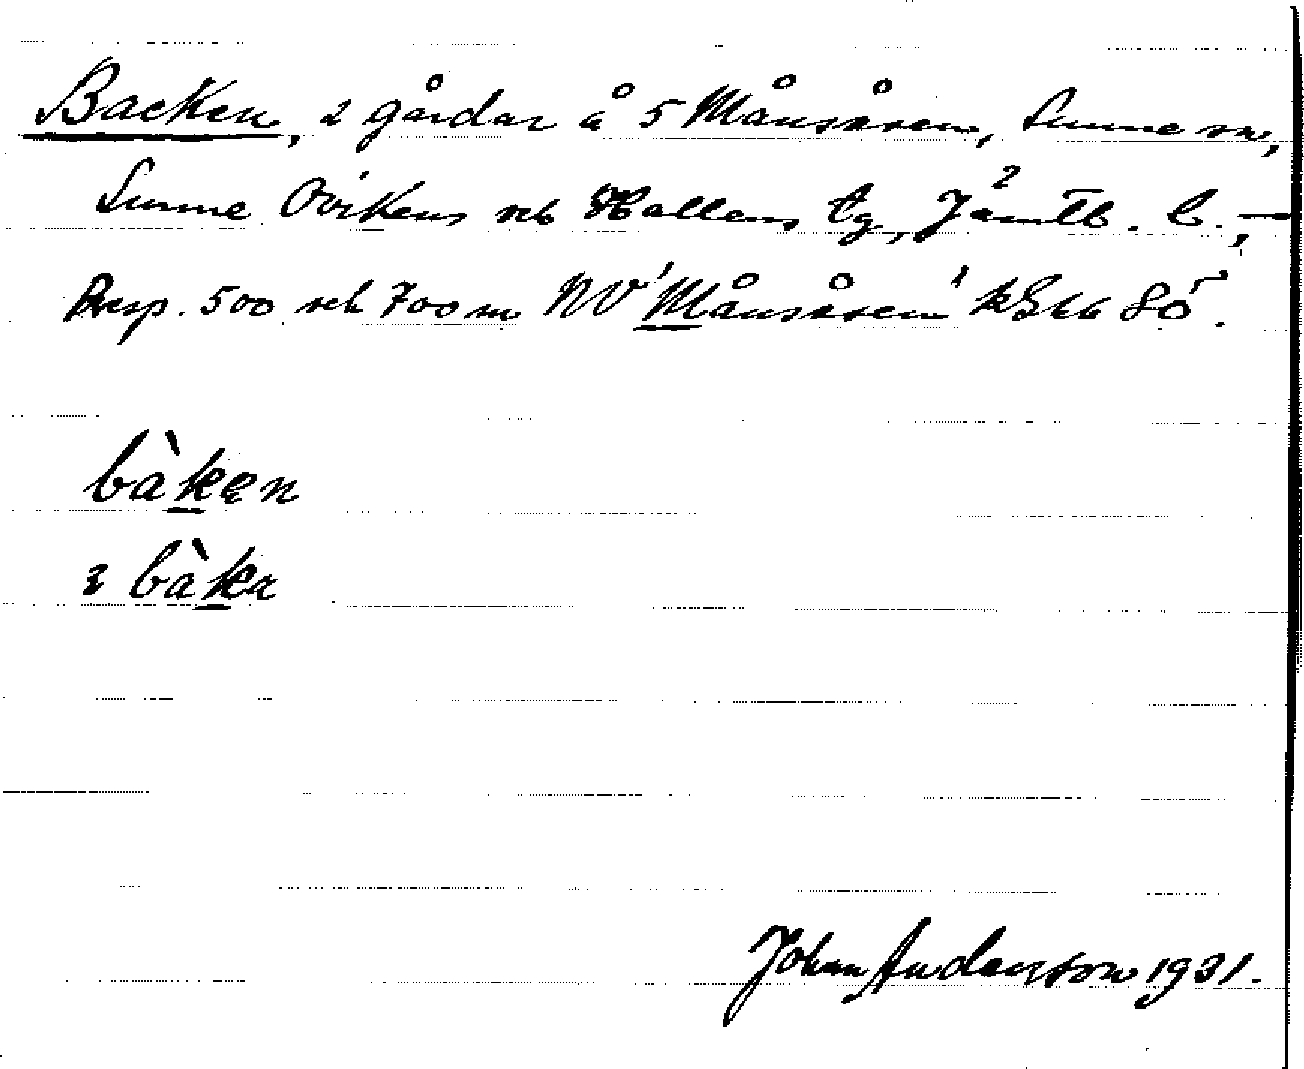 Backen, 2 gårdar å 5 Månsåsen, Sunne sn,
Sunne Ovikens och Hallens tg, Jämtl. l.,—
Resp. 500 och 700 m NV 'Månsåsen' k 66 SÖ.
bàken
bàka
Johan Andersson 1931.